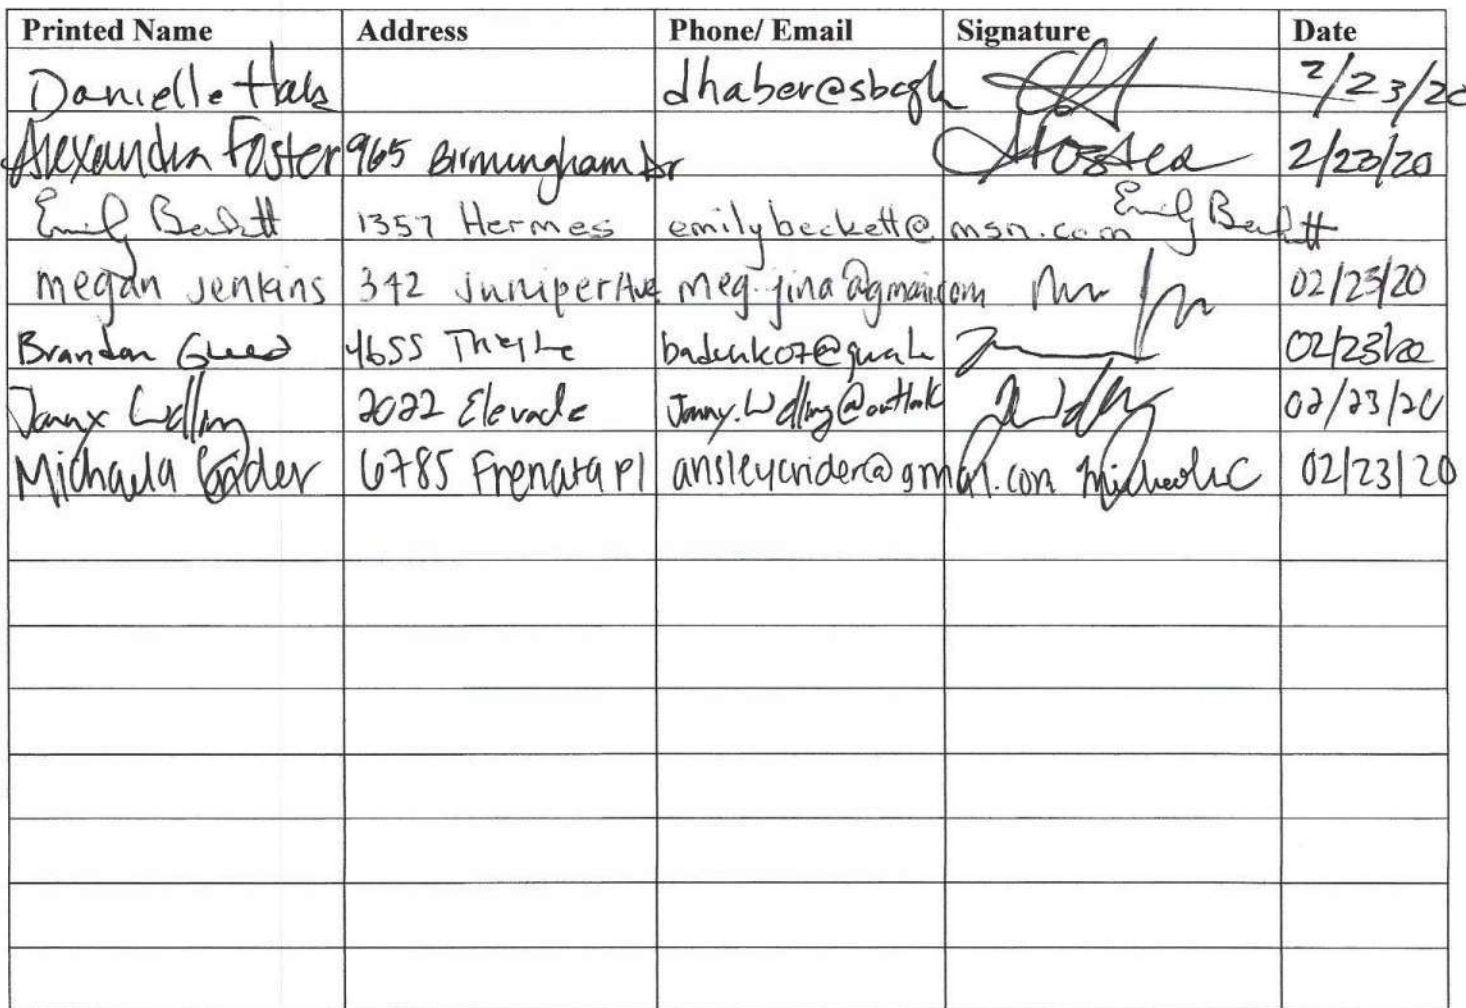 Printed Name Address Phone/ Email Signature Date
Danielle dhaber@sbcgl 2/23/20
Alexandra Foster 965 Birmingham Dr 2/23/20
Emily Beckett 1357 Hermes emilybeckett@msn.com Emily Beckett
megan jenkins 342 Juniper Ave meg.jina@gmail.com 02/23/20
Brandon 4655 02/23/20
2022 Elevado 02/23/20
Michaela Crider 6785 Frenata Pl ansleycrider@gmail.com Michaela C 02/23/20